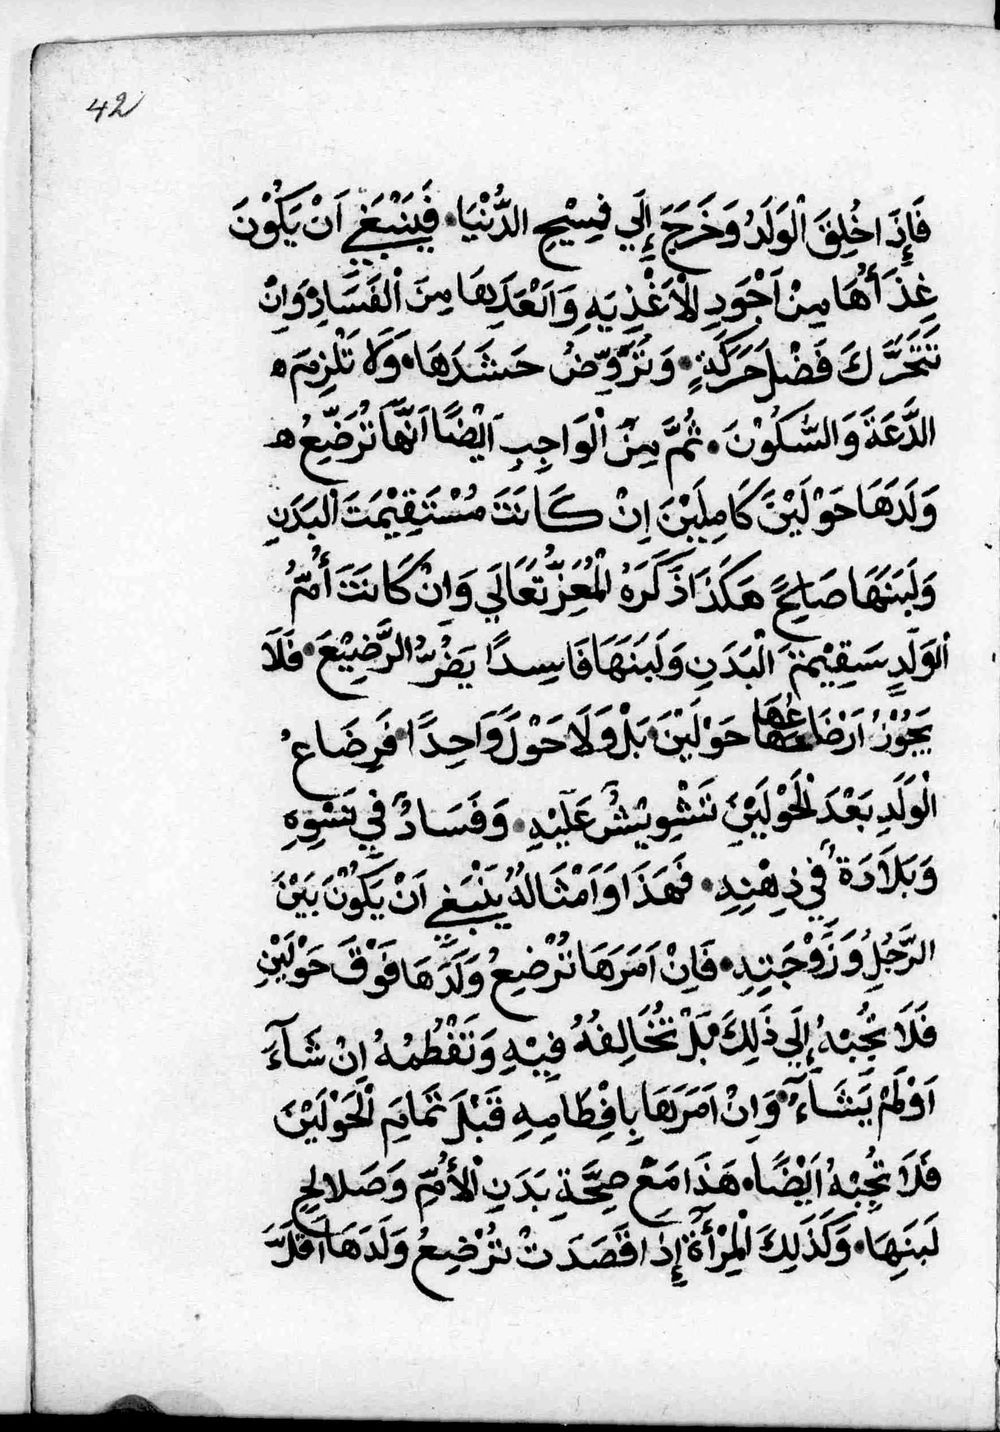 42
فَإِذَا خُلِقَ الْوَلَدُ وَخَرَجَ إِلَي فِسِيْحِ الدُّنْيَا۰ فَيَنْبَغِي اَنْ يَكُوْنَ
غِذَأُهَا مِنْ اَجْوَدِ الْاَغْذِيَهِ وَاَبْعَدِهَا مِنَ الْفَسَادِ وَاِنْ
تَتَحَرَّكَ فَضْلَ حَرَكَةٍ۰ وَتُرَوِّضُ حَسَدَهَا۰ وَلَا تَلْزِمَ
الدَّعَةَ وَالسُّكُوْنَ۰ ثُمَّ مِنَ الْوَاجِبِ اَيْضًا اَنَّهَا تُرَضِّعُ
وَلَدَهَا حَوْلَيْنَ كَامِلَيْنَ اِنْ كَانَتَ مُسْتَقِيْمَتَ الْبَدَنِ
وَلَبَنَهَا صَالِحً هَكَذَا ذَكَرَهُ الْمُعِزُّ تَعَالَي وَاِنْ كَانَتَ أُمُّ
الْوَلَدِ سَقِيْمَتَ الْبَدَنِ وَلَبَنَهَا فَاسِدًا يَضُرُّ الرَّضِيْعَ۰ فَلَا
يَجُوْزُ اَرْضَاعُهَا حَوْلَيْنَ۰ بَلْ وَلَا حَوْلَ وَاحِدًا۰ فَرِضَاعُ
الْوَلَدِ بَعْدَ الْحَوْلَيْنِ تَشْوِيْشُ عَلَيْهِ۰ وَفَسَادٌ فِي نَشْوِهِ
وَبَلَادَةٌ فِي ذِهْنِهِ۰ فَهَذَا وَاَمْثَالَهُ يَنْبَغِي اَنْ يَكُوْنَ بَيْنَ
الرَّجُلِ وَزَوْجَتِهِ۰ فَاِنْ اَمَرَهَا تُرْضِعُ وَلَدَهَا فَوْقَ حَوْلَيْنِ
فَلَا تُجِبْهُ إِلَي ذَلِكَ بَلْ تُخَالِفُهُ فِيْهِ وَتَفْطُمْهُ اِنْ شَآءَ
اَوْ لَمْ يَشَآءُ۰ وَاِنْ اَمَرَهَا بِاِفْطَامِهِ قَبْلَ تَمَامِ الْحَوْلَيْنَ
فَلَا تُجِبْهُ اَيْضًا۰ هَذَا مَعَ صِحَّةِ بَدَنِ الْأُمِّ وَصَلَاحِ
لَبَنِهَا۰ وَكَذَلِكَ الْمِرْأَةُ إِذَا قَصَدَتْ تُرْضِعُ وَلَدَهَا اَقَلَّ